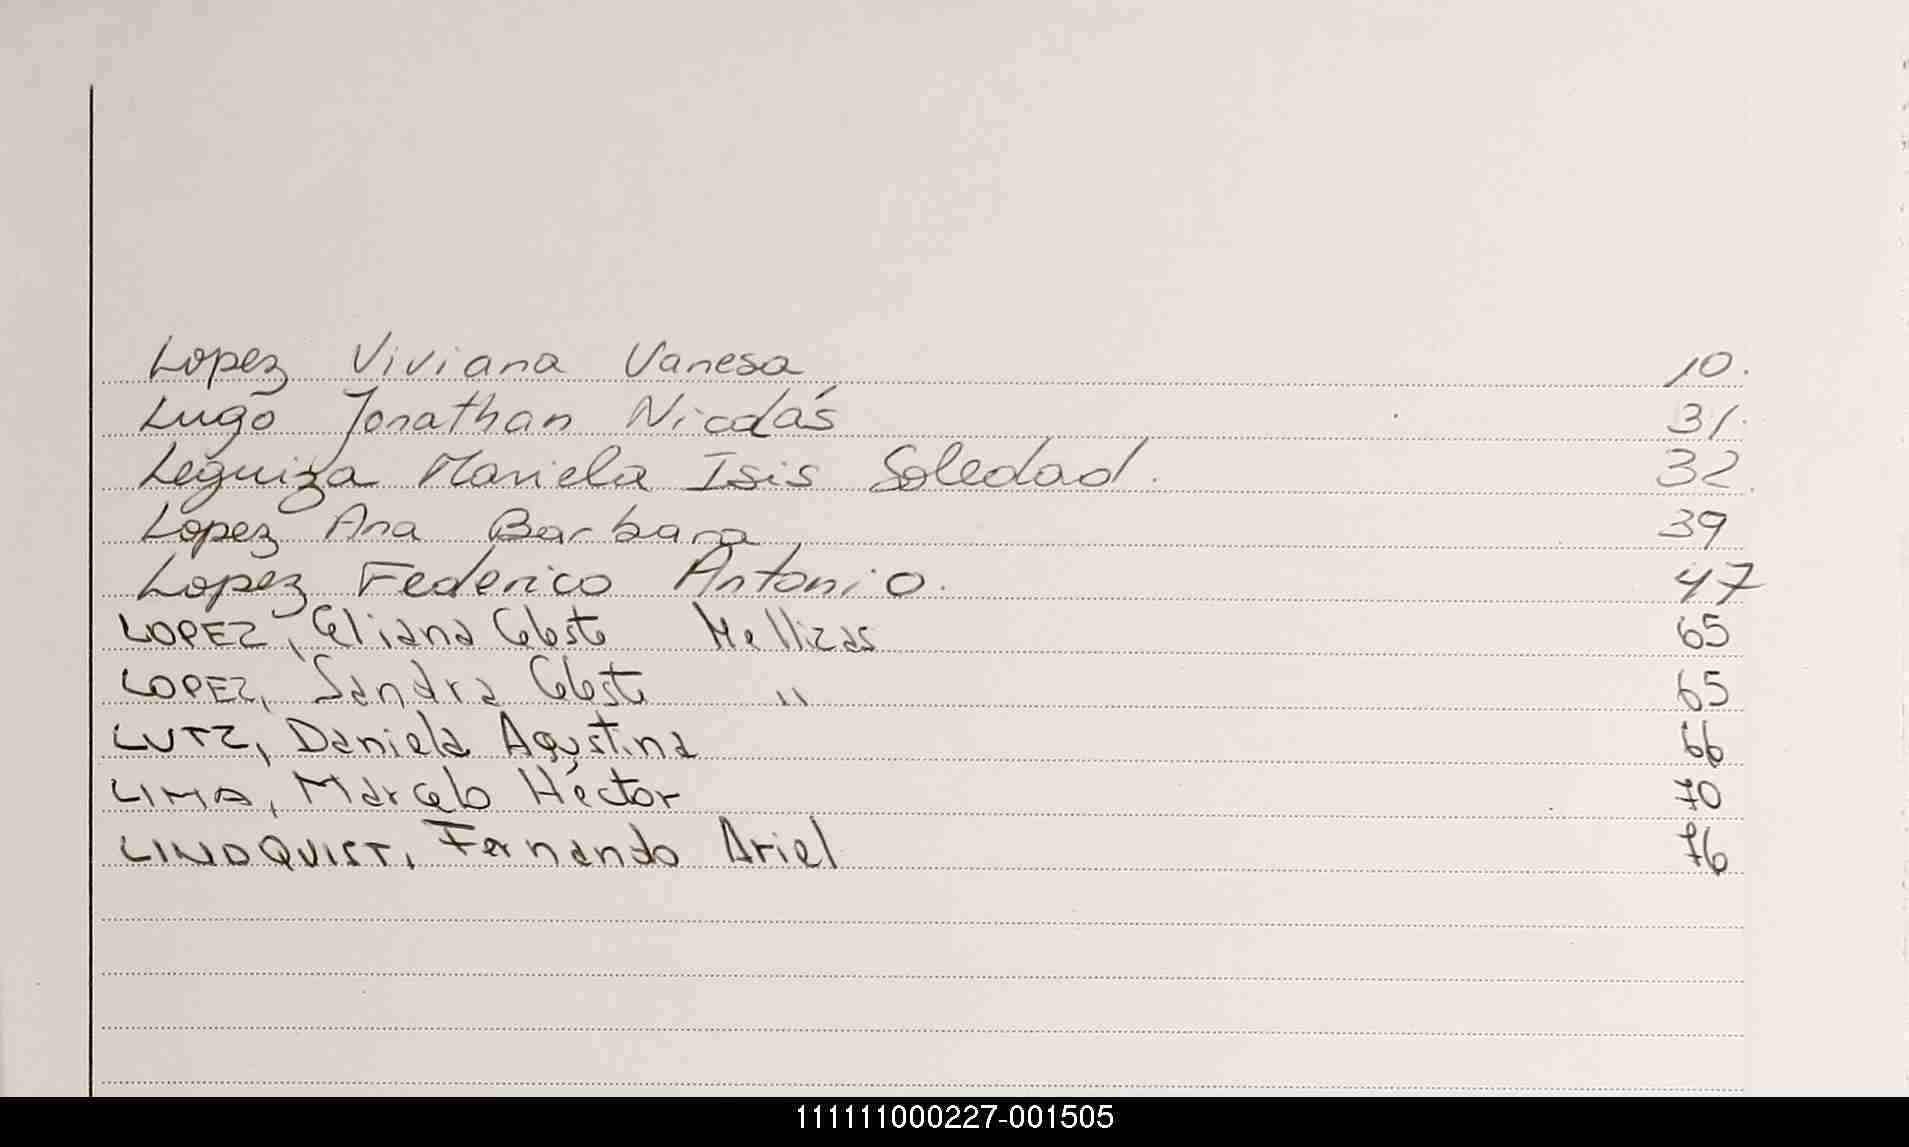 Lopez Viviana Vanesa 10.
Lugo Jonathan Nicolás 31.
Leguiza Mariela Isis Soledad. 32.
Lopez Ana Barbara 39
Lopez Federico Antonio. 47
LOPEZ, Celiana Celeste Mellizas 65
LOPEZ, Sandra Celeste " 65
LUTZ, Daniela Agustina 66
LIMA, Marcelo Héctor 70
LINDQUIST, Fernando Ariel 76
111111000227-001505